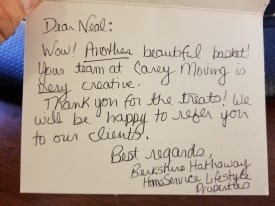 Dear Neal:
Wow! Another beautiful basket!
Your team at Carey Moving is
very creative.
Thank you for the treats! We
will be happy to refer you
to our clients.
Best regards,
Berkshire Hathaway
HomeService Lifestyle
Properties